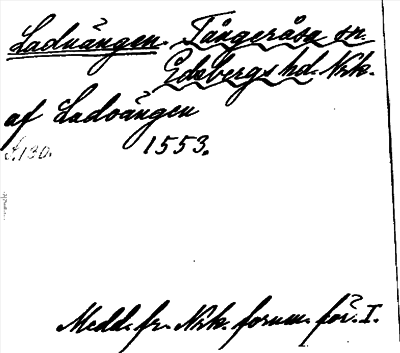 Ladvängen. Tångeråsa sn.
Edsbergs hd. Nrk.
af Ladvängen
S. 130. 1553.
Medd. fr. Nrk. fornm. för. I.